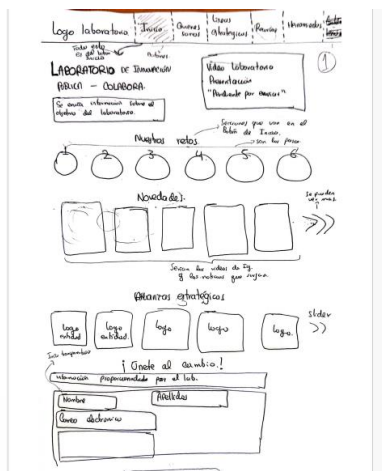 Logo laboratorio
Inicio
Quienes somos
Líneas estratégicas
Herramientas
Todo esto es del botón de Inicio
Botones
1
LABORATORIO DE INNOVACIÓN
PÚBLICA - COLABORA.
Se envía información sobre el
objetivo del laboratorio.
Video laboratorio
Presentación
"Pendiente por enviar"
Secciones que van en el
Botón de Inicio.
Nuestros retos
son los pasos
1 2 3 4 5 6
Novedades.
Se pueden ver más
Serían los videos de Ig.
y las noticias que surjan.
Alianzas estratégicas
Logo entidad
Logo entidad
Logo
Logo
Logo
slider
¡Únete al cambio!
información proporcionada por el lab.
Nombre
Apellidos
Correo electrónico